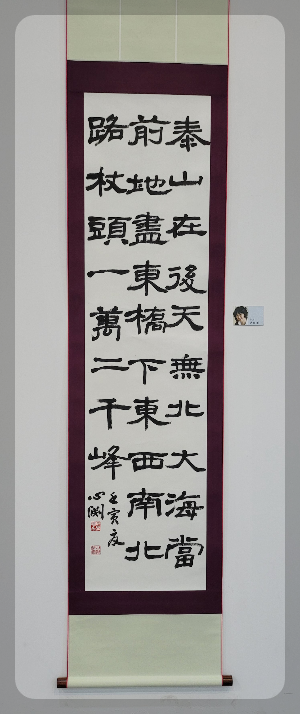 泰山在後天無北大海當
前地盡東橋下東西南北
路杖頭一萬二千峰
壬寅夏
心闲